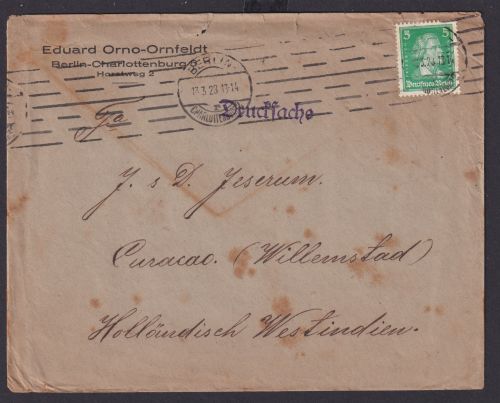 Eduard Orno-Ornfeldt
Berlin-Charlottenburg 9
Horstweg 2
BERLIN-
13.3.28 13-14
CHARLOTTENBURG
5 5
Deutsches Reich
Drucksache
Fa
J. s D. Jeserum.
Curacao. (Willemstad)
Holländisch Westindien.